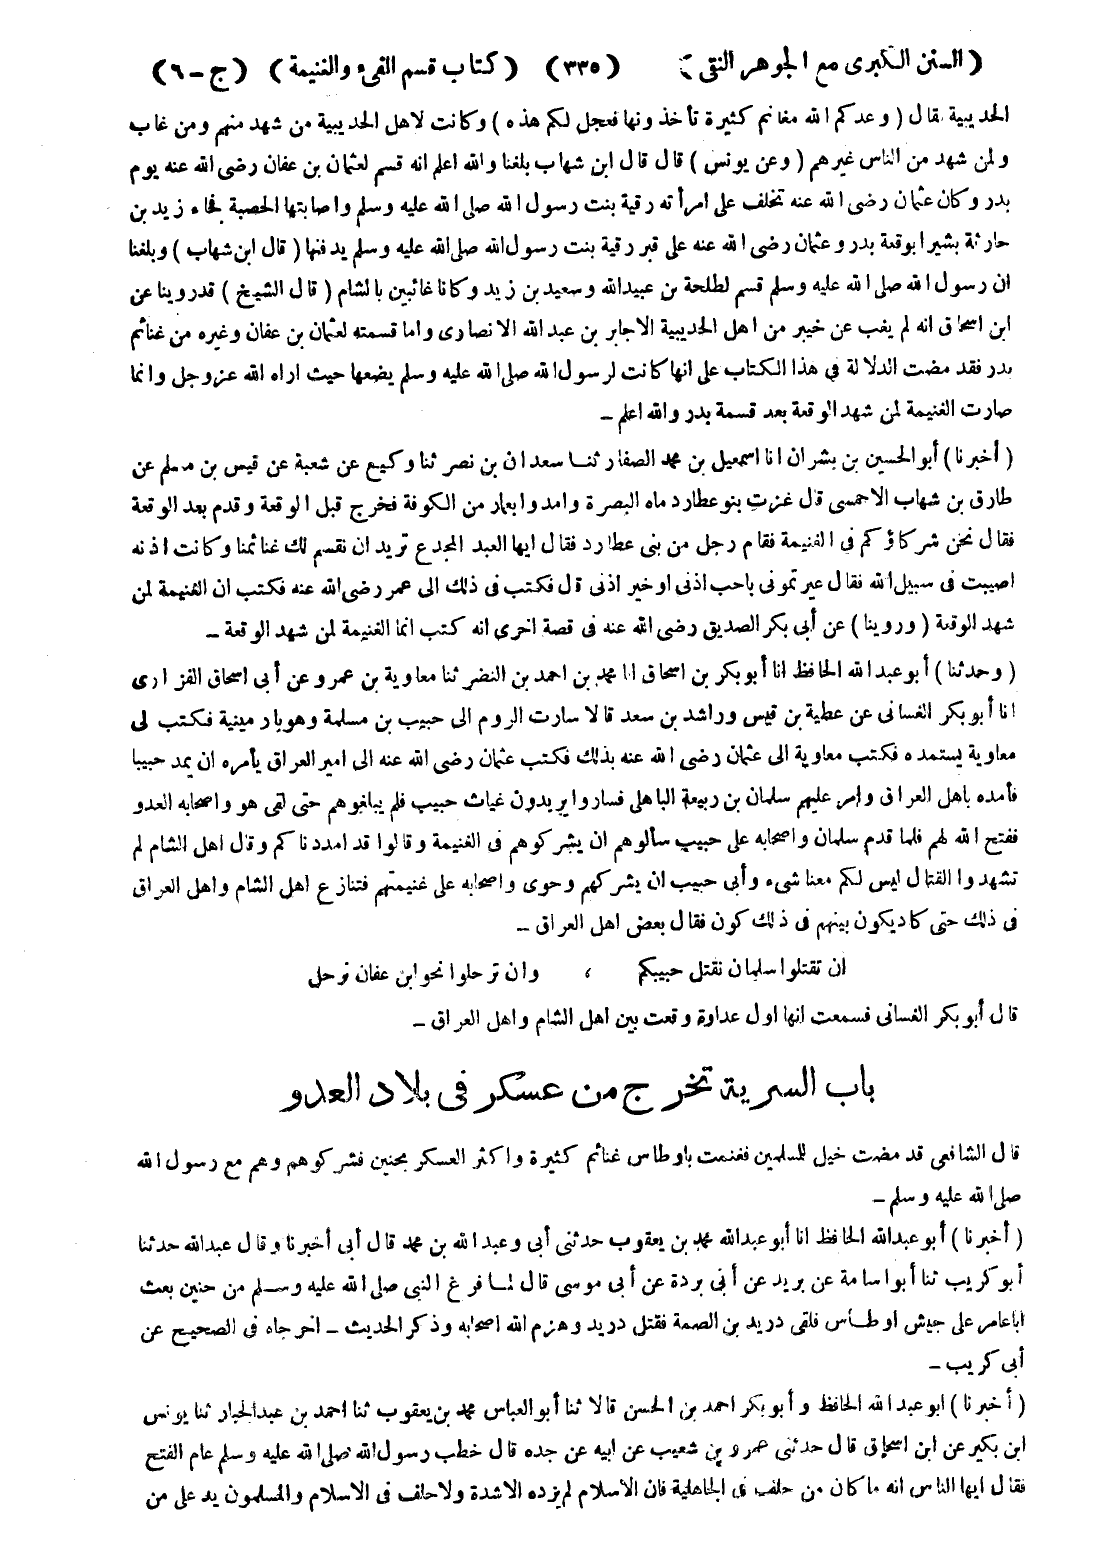 ( السنن الكبرى مع الجوهر النقى ) ( ٣٣٥ ) ( كتاب قسم الفىء والغنيمة ) ( ج - ٦ )
الحديبية فقال ( وعدكم الله مغانم كثيرة تأخذونها فعجل لكم هذه ) وكانت لاهل الحديبية من شهد منهم ومن غاب
ولمن شهد من الناس غيرهم ( وعن يونس ) قال قال ابن شهاب بلغنا والله اعلم انه قسم لعثمان بن عفان رضى الله عنه يوم
بدر وكان عثمان رضى الله عنه تخلف على امرأته رقية بنت رسول الله صلى الله عليه وسلم واصابتها الحصبة فجاء زيد بن
حارثة بشيرا بوقعة بدر وعثمان رضى الله عنه على قبر رقية بنت رسول الله صلى الله عليه وسلم يدفنها ( قال ابن شهاب ) وبلغنا
ان رسول الله صلى الله عليه وسلم قسم لطلحة بن عبيد الله وسعيد بن زيد وكانا غائبين بالشام ( قال الشيخ ) قد روينا عن
ابن اسحاق انه لم يغب عن خيبر من اهل الحديبية الا جابر بن عبد الله الانصارى واما قسمته لعثمان بن عفان وغيره من غنائم
بدر فقد مضت الدلالة في هذا الكتاب على انها كانت لرسول الله صلى الله عليه وسلم يضعها حيث اراه الله عز وجل وانما
صارت الغنيمة لمن شهد الوقعة بعد قسمة بدر والله اعلم -
( أخبرنا ) أبو الحسين بن بشران انا اسمعيل بن محمد الصفار ثنا سعدان بن نصر ثنا وكيع عن شعبة عن قيس بن مسلم عن
طارق بن شهاب الاحمسى قال غزت بنو عطارد ماه البصرة وامدوا بعمار من الكوفة فخرج قبل الوقعة وقدم بعد الوقعة
فقال نحن شركاؤكم في الغنيمة فقام رجل من بنى عطارد فقال ايها العبد المجدع تريد ان نقسم لك غنائمنا وكانت اذنه
اصيبت فى سبيل الله فقال عيرتمونى باحب اذنى او خير اذنى قال فكتب فى ذلك الى عمر رضى الله عنه فكتب ان الغنيمة لمن
شهد الوقعة ( وروينا ) عن أبى بكر الصديق رضى الله عنه فى قصة اخرى انه كتب انما الغنيمة لمن شهد الوقعة -
( وحدثنا ) أبو عبد الله الحافظ انا أبو بكر بن اسحاق انا محمد بن احمد بن النضر ثنا معاوية بن عمرو عن أبى اسحاق الفزارى
انا أبو بكر الغسانى عن عطية بن قيس وراشد بن سعد قالا سارت الروم الى حبيب بن مسلمة وهو بارمينية فكتب لى
معاوية يستمده فكتب معاوية الى عثمان رضى الله عنه بذلك فكتب عثمان رضى الله عنه الى امير العراق يأمره ان يمد حبيبا
فأمده باهل العراق وامر عليهم سلمان بن ربيعة الباهلى فساروا يريدون غياث حبيب فلم يبلغوهم حتى لقى هو واصحابه العدو
ففتح الله لهم فلما قدم سلمان واصحابه على حبيب سألوهم ان يشركوهم فى الغنيمة وقالوا قد امددناكم وقال اهل الشام لم
تشهدوا القتال ليس لكم معنا شىء وأبى حبيب ان يشركهم وحوى واصحابه على غنيمتهم فتنازع اهل الشام واهل العراق
فى ذلك حتى كاد يكون بينهم فى ذلك كون فقال بعض اهل العراق -
ان تقتلوا سلمان نقتل حبيبكم ، وان ترحلوا نحو ابن عفان نرحل
قال أبو بكر الغسانى فسمعت انها اول عداوة وقعت بين اهل الشام واهل العراق -
باب السرية تخرج من عسكر فى بلاد العدو
قال الشافعى قد مضت خيل للمسلمين فغنمت باوطاس غنائم كثيرة واكثر العسكر بحنين فشركوهم وهم مع رسول الله
صلى الله عليه وسلم -
( أخبرنا ) أبو عبد الله الحافظ انا أبو عبد الله محمد بن يعقوب حدثنى أبى وعبد الله بن محمد قال أبى أخبرنا وقال عبد الله حدثنا
أبو كريب ثنا أبو اسامة عن بريد عن أبى بردة عن أبى موسى قال لما فرغ النبى صلى الله عليه وسلم من حنين بعث
ابا عامر على جيش اوطاس فلقى دريد بن الصمة فقتل دريد وهزم الله اصحابه وذكر الحديث - اخرجاه فى الصحيح عن
أبى كريب -
( أخبرنا ) ابو عبد الله الحافظ وأبو بكر احمد بن الحسن قالا ثنا أبو العباس محمد بن يعقوب ثنا احمد بن عبد الجبار ثنا يونس
ابن بكير عن ابن اسحاق قال حدثنى عمرو بن شعيب عن ابيه عن جده قال خطب رسول الله صلى الله عليه وسلم عام الفتح
فقال ايها الناس انه ما كان من حلف فى الجاهلية فان الاسلام لم يزده الا شدة ولا حلف فى الاسلام والمسلمون يد على من